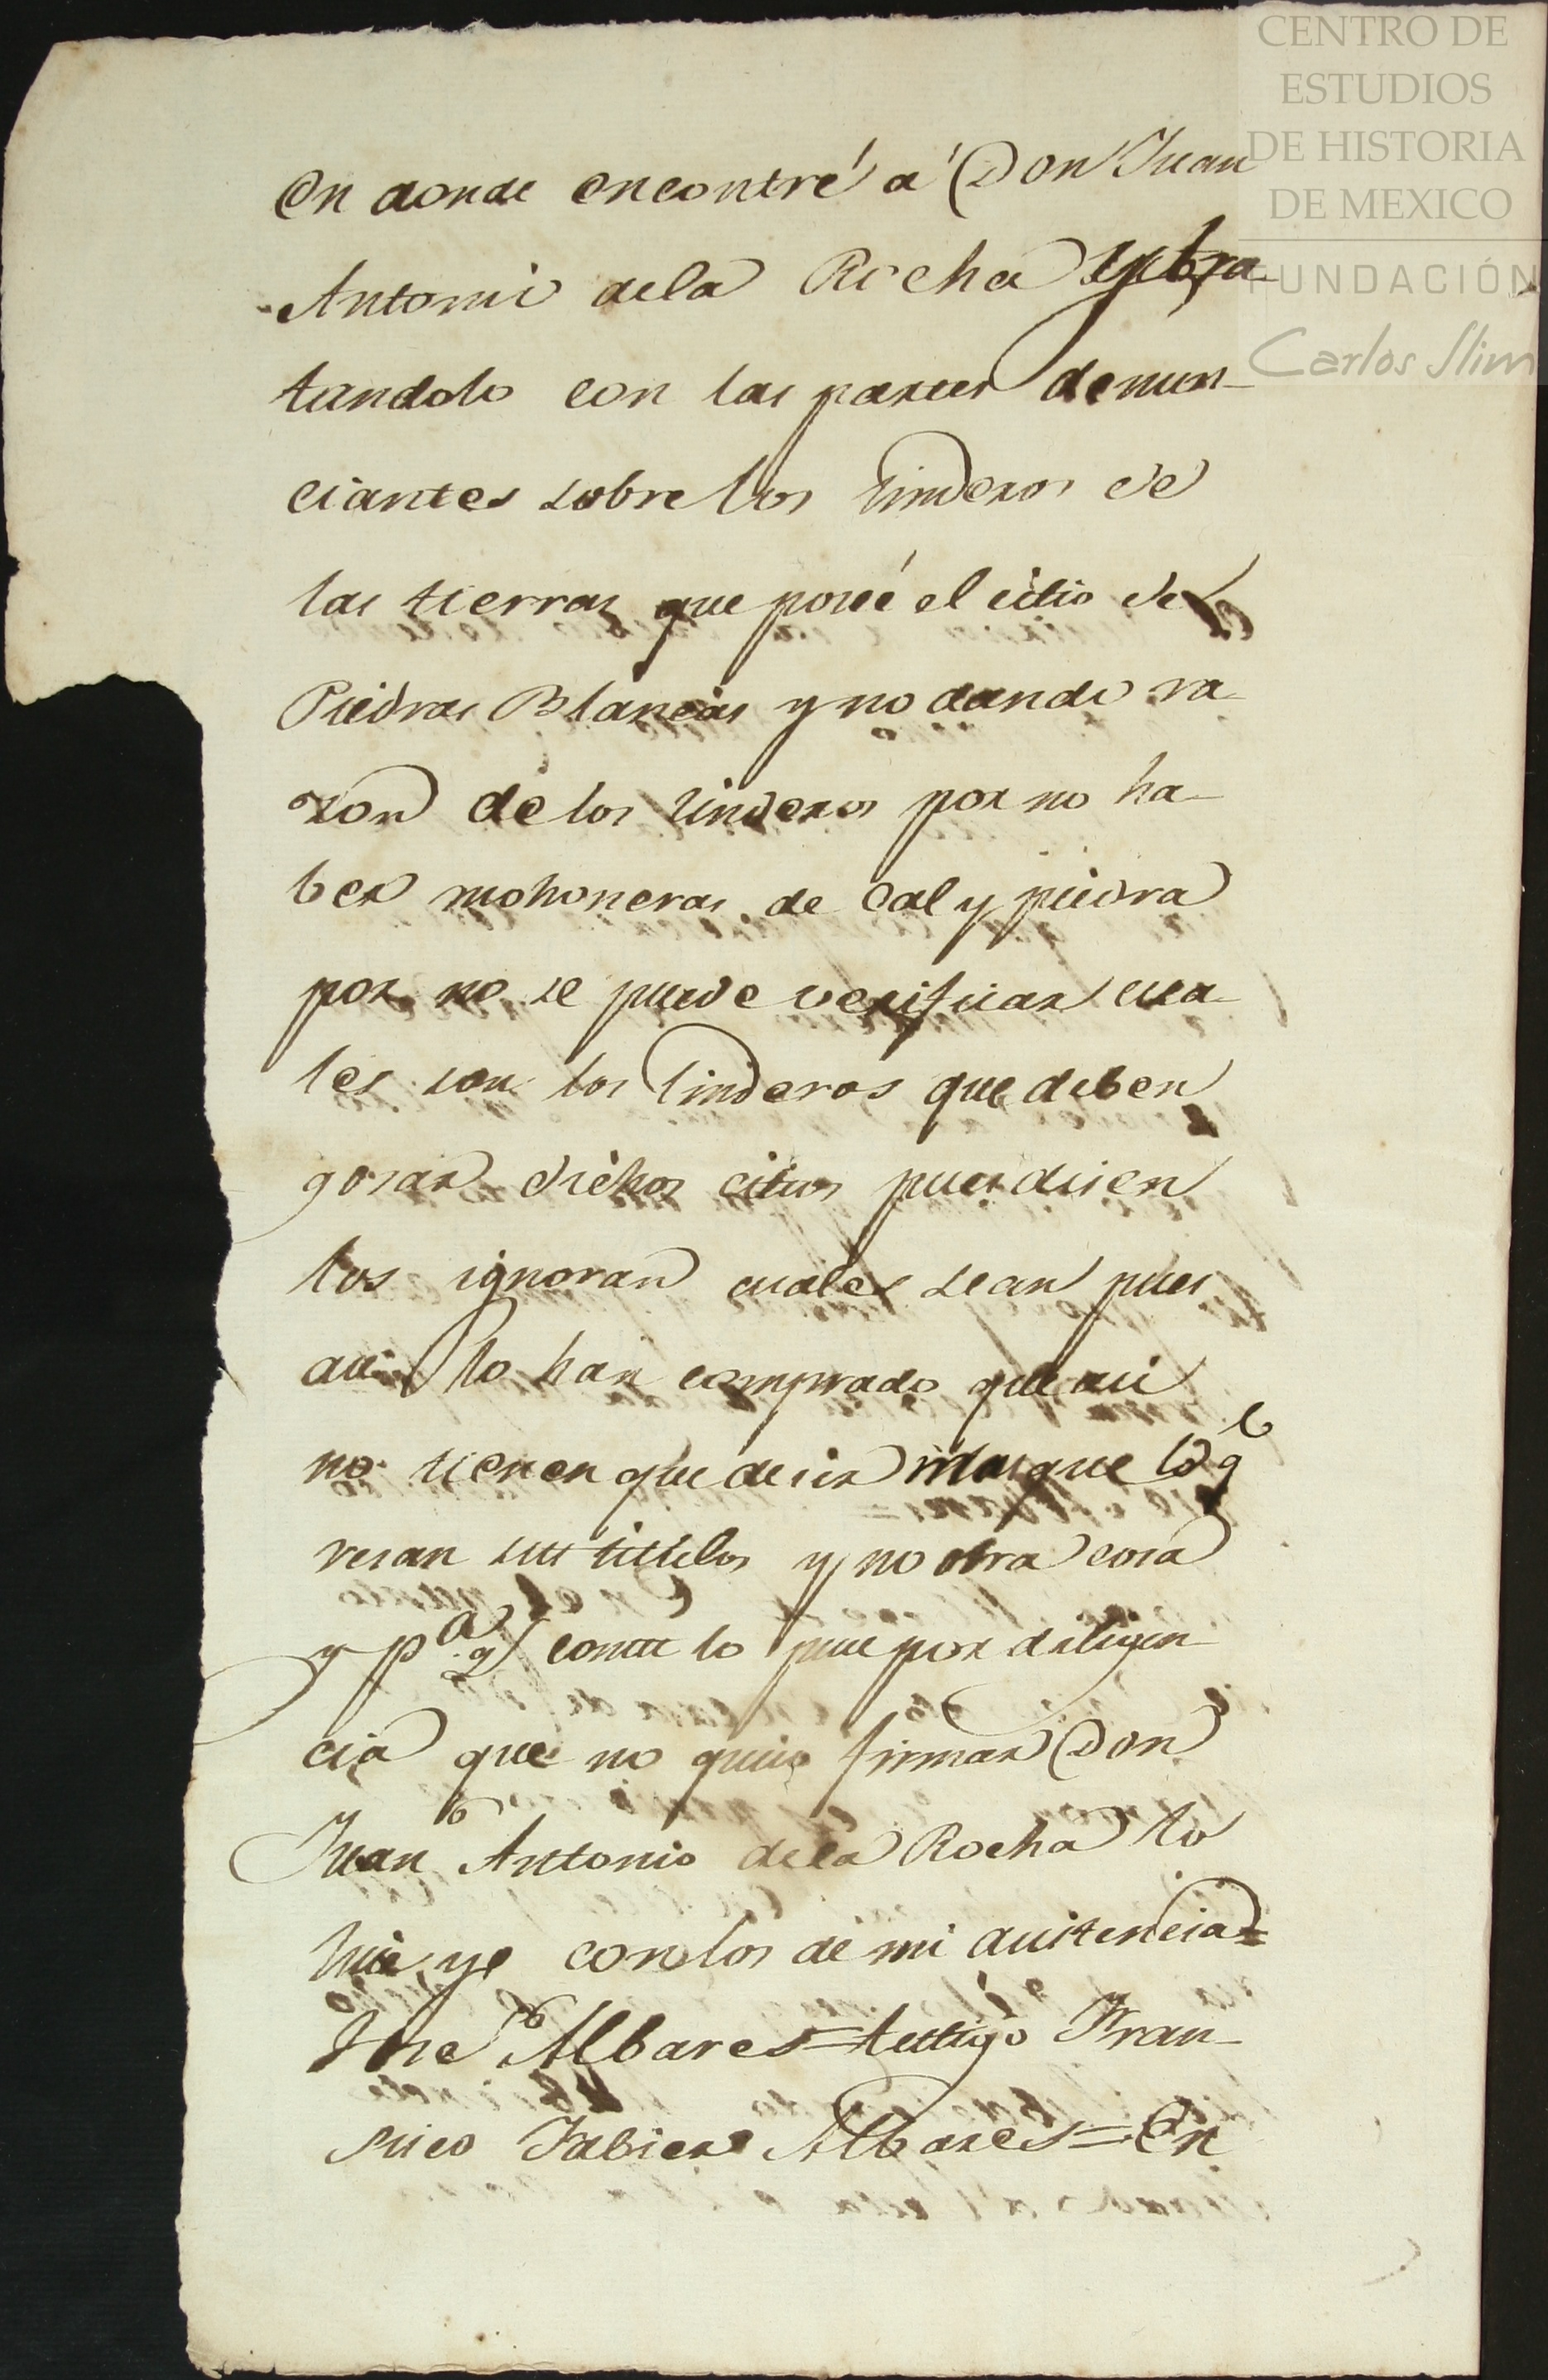 CENTRO DE
ESTUDIOS
DE HISTORIA
DE MEXICO
FUNDACIÓN
Carlos Slim
en donde encontré á Don Juan
Antonio dela Rocha y tra-
tandolo con las partes denun-
ciantes sobre los linderos de
las tierras que poseé el citio de
Piedras Blancas y no dando ra-
zon de los linderos por no ha-
ber mohoneras de cal y piedra
por no se puede verificar cua-
les son los linderos que deben
gosar dichos citios pues disen
los ignoran cuales sean pues
asi lo han comprado que asi
no tienen que desir mas que lo q
resan sus titulos y no otra cosa
y pa. q conste lo puse por diligen-
cia que no quiso firmar Don
Juan Antonio dela Rocha lo
hise yo con los de mi asistencia=
José Albares= testigo Fran-
sisco Jabier Albares= En